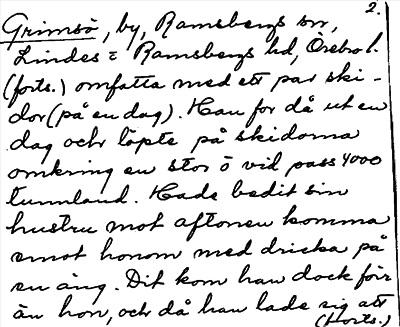 2.
Grimsö, by, Ramsbergs sn,
Lindes = Ramsbergs hd, Örebro l.
(forts.) omfatta med ett par ski-
dor (på en dag). Han for då ut en
dag och löpte på skidorna
omkring en stor ö vid pass 4000
tunnland. Hade bedit sin
hustru mot aftonen komma
emot honom med dricka på
en äng. Dit kom han dock förr
än hon, och då han lade sig att
(forts.)